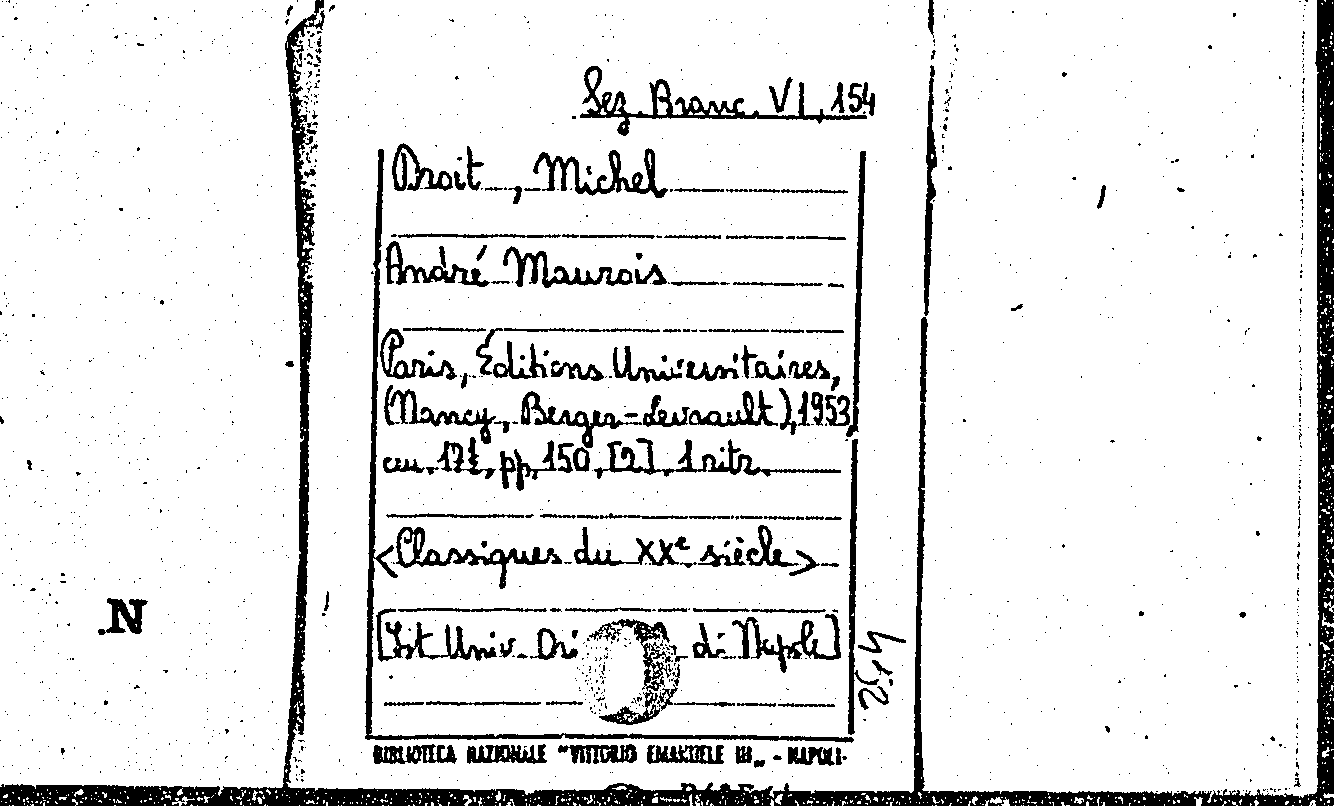 Sez. Branc. VI, 154
Droit, Michel
André Maurois
Paris, Éditions Universitaires,
(Nancy, Berger-Levrault), 1953,
cm. 17½, pp. 150, [2]. 1 ritr.
<Classiques du XXᵉ siècle>
[Ist. Univ. di Napoli]
N
BIBLIOTECA NAZIONALE "VITTORIO EMANUELE III„ - NAPOLI